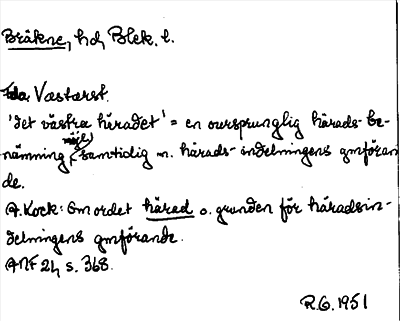 Bräkne, hd, Blek. l.
Västerst.
'det västra häradet' = en oursprunglig härads-be-
nämning, möjl. samtidig m. härads-indelningens gmföran
de.
A. Kock: Om ordet härad o. grunden för häradsin-
delningens gmförande.
ANF 21, s. 368.
R.G. 1951